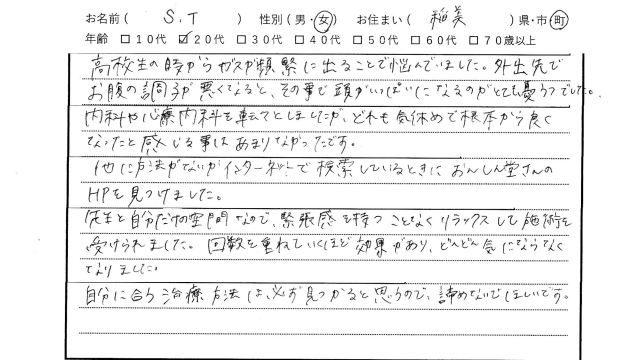 お名前( S.T ) 性別(男・女) お住まい( 稲美 )県・市・町
年齢 □10代 ☑20代 □30代 □40代 □50代 □60代 □70歳以上
高校生の時からガスが頻繁に出ることで悩んでいました。外出先で
お腹の調子が悪くなると、その事で頭がいっぱいになるのがとても憂うつでした。
内科や心療内科を転てとしましたが、どれも気休めで根本から良く
なったと感じる事はあまりなかったです。
他に方法がないかインターネットで検索しているときにおんしん堂さんの
HPを見つけました。
先生と自分だけの空間なので、緊張感を持つことなくリラックスして施術を
受けられました。回数を重ねていくほど効果があり、どんどん気にならなく
なりました。
自分に合う治療方法は、必ず見つかると思うので、諦めないでほしいです。